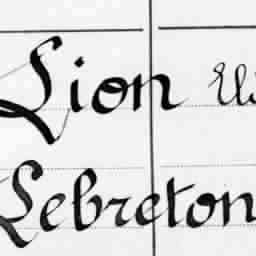 Lion
Lebreton